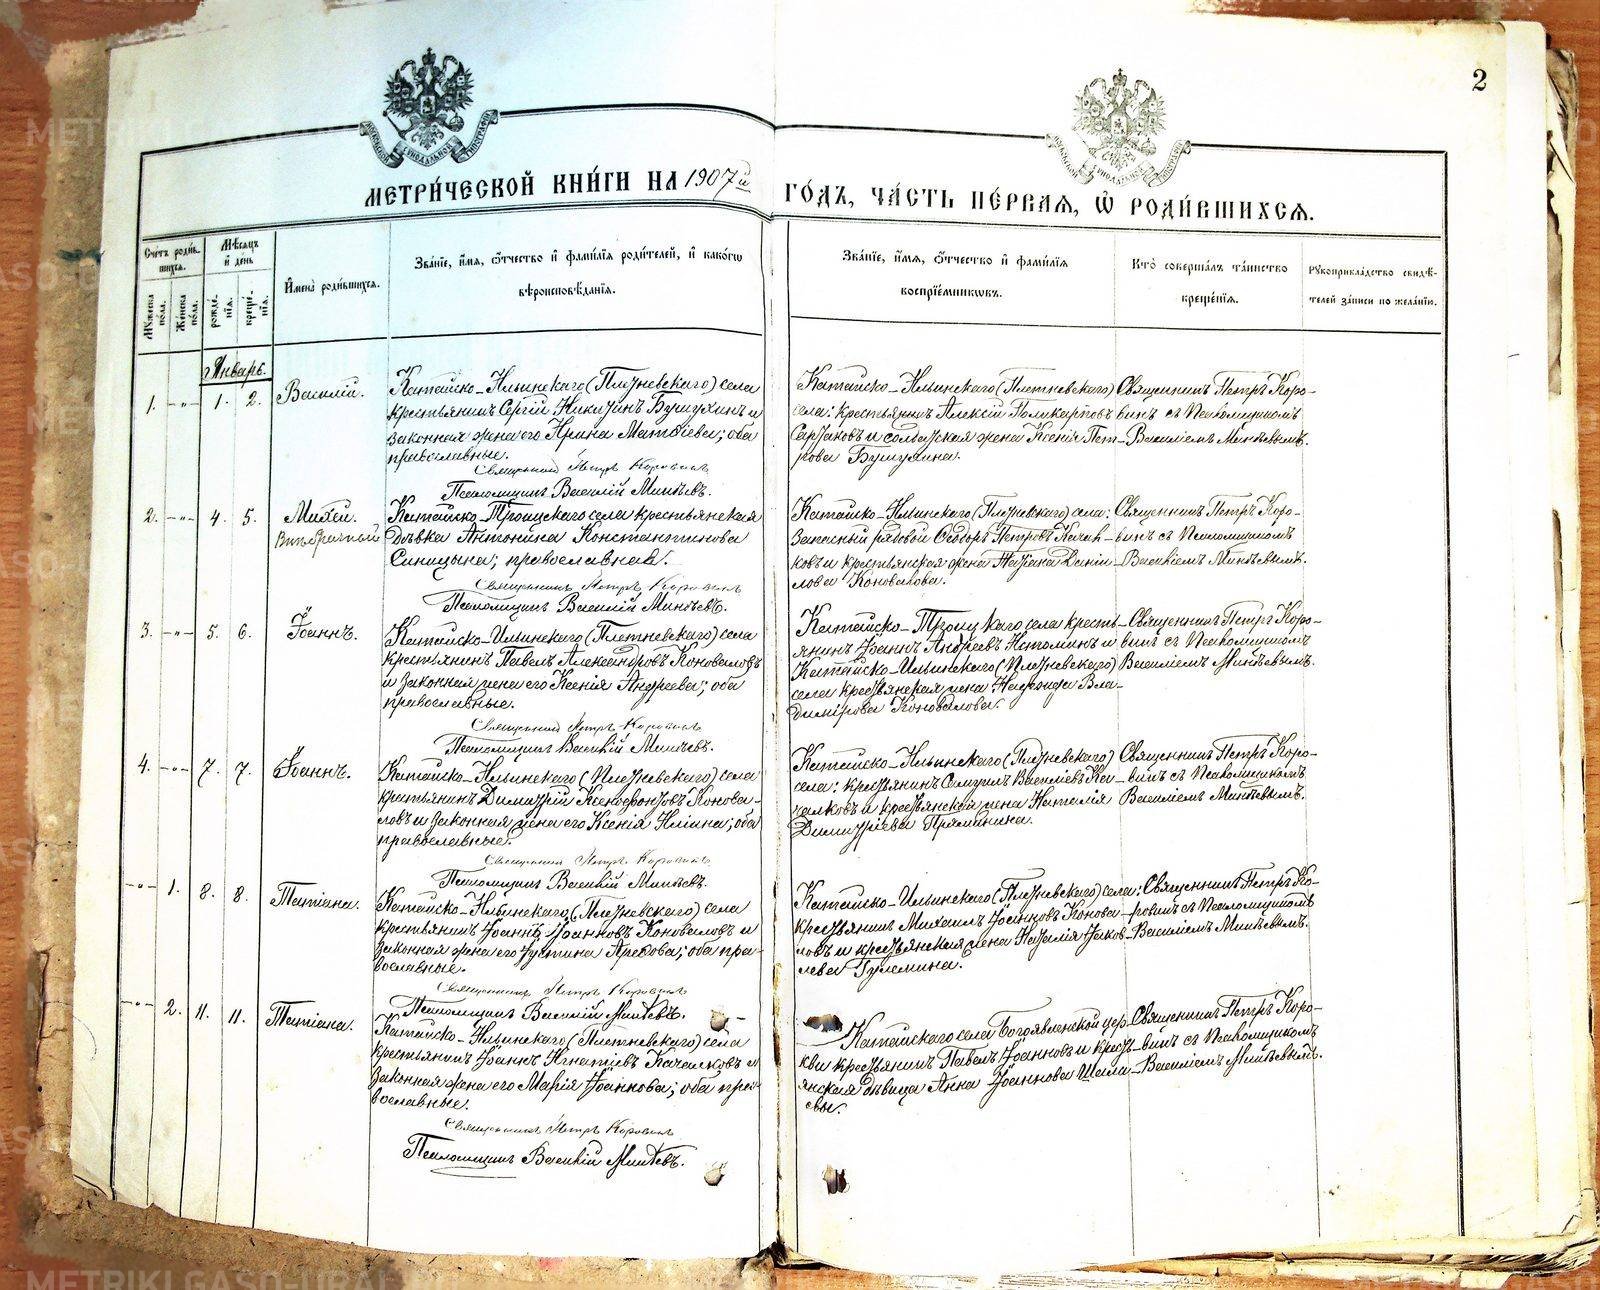 2
МЕТРИ́ЧЕСКОЙ КНИ́ГИ НА 1907й ГО́ДЪ, ЧА́СТЬ ПЕ́РВАЯ, Ѡ РОДИ́ВШИХСЯ.
Счетъ роди́вшихся.
Му́жеска по́ла.
Же́нска по́ла.
Мѣ́сяцъ и де́нь
рожде́нїя.
креще́нїя.
И҆мена̀ роди́вшихся.
Зва́нїе, и҆́мя, ѻ҆́тчество и҆ фами́лїя роди́телей, и҆ како́гѡ
вѣроисповѣ́данїя.
Зва́нїе, и҆́мя, ѻ҆́тчество и҆ фами́лїя
воспрїе́мникѡвъ.
Кто̀ соверша́лъ та́инство
креще́нїя.
Рꙋкоприкла́дство свидѣ́-
телей за́писи по жела́нїю.
Январь.
1. -„- 1. 2. Василій.
Катайско-Ильинскаго (Плетневскаго) села
крестьянинъ Сергій Никитинъ Бушухинъ и
законная жена его Ирина Матѳіева; оба
православные.
Священникъ Петръ Коровинъ
Псаломщикъ Василій Минѣевъ.
Катайско-Ильинскаго (Плетневскаго)
села: крестьянинъ Алексій Поликарповъ
и солдатская жена Ксенія Пет-
рова Бушухина.
Священникъ Петръ Коро-
винъ съ Псаломщикомъ
Василіемъ Минѣевымъ.
2. -„- 4. 5. Михей.
Внѣбрачный
Катайско-Троицкаго села крестьянская
дѣвка Антонина Константинова
Синицына; православная.
Священникъ Петръ Коровинъ
Псаломщикъ Василій Минѣевъ.
Катайско-Ильинскаго (Плетневскаго) села:
Запасный рядовой Ѳеодоръ Петровъ Качал-
ковъ и крестьянская жена Татіана Даніи-
лова Коновалова.
Священникъ Петръ Коро-
винъ съ Псаломщикомъ
Василіемъ Минѣевымъ.
3. -„- 5. 6. Іоаннъ.
Катайско-Ильинскаго (Плетневскаго) села
крестьянинъ Павелъ Александровъ Коноваловъ
и законная жена его Ксенія Андреева; оба
православные.
Священникъ Петръ Коровинъ
Псаломщикъ Василій Минѣевъ.
Катайско-Троицкаго села кресть-
янинъ Іоаннъ Андреевъ Истоминъ и
Катайско-Ильинскаго (Плетневскаго)
села крестьянская жена Надежда Вла-
димірова Коновалова.
Священникъ Петръ Коро-
винъ съ Псаломщикомъ
Василіемъ Минѣевымъ.
4. -„- 7. 7. Іоаннъ.
Катайско-Ильинскаго (Плетневскаго) села
крестьянинъ Димитрій Ксенофонтовъ Конова-
ловъ и законная жена его Ксенія Иліина; оба
православные.
Священникъ Петръ Коровинъ
Псаломщикъ Василій Минѣевъ.
Катайско-Ильинскаго (Плетневскаго)
села: крестьянинъ Самуилъ Василіевъ Ка-
чалковъ и крестьянская жена Наталія
Димитріева Прямикина.
Священникъ Петръ Коро-
винъ съ Псаломщикомъ
Василіемъ Минѣевымъ.
-„- 1. 8. 8. Татіана.
Катайско-Ильинскаго (Плетневскаго) села
крестьянинъ Іоаннъ Іоанновъ Коноваловъ и
законная жена его Іустина; оба пра-
вославные.
Священникъ Петръ Коровинъ
Псаломщикъ Василій Минѣевъ.
Катайско-Ильинскаго (Плетневскаго) села:
крестьянинъ Михаилъ Іоанновъ Конова-
ловъ и крестьянская жена Наталія Іаков-
лева Гулемина.
Священникъ Петръ Ко-
ровинъ съ Псаломщикомъ
Василіемъ Минѣевымъ.
-„- 2. 11. 11. Татіана.
Катайско-Ильинскаго (Плетневскаго) села
крестьянинъ Іоаннъ Игнатіевъ Качалковъ и
законная жена его Марія Іоаннова; оба пра-
вославные.
Священникъ Петръ Коровинъ
Псаломщикъ Василій Минѣевъ.
Катайскаго села Богоявленской цер-
кви крестьянинъ Павелъ Іоанновъ и кресть-
янская дѣвица Анна Іоаннова Шали-
овы.
Священникъ Петръ Коро-
винъ съ Псаломщикомъ
Василіемъ Минѣевымъ.